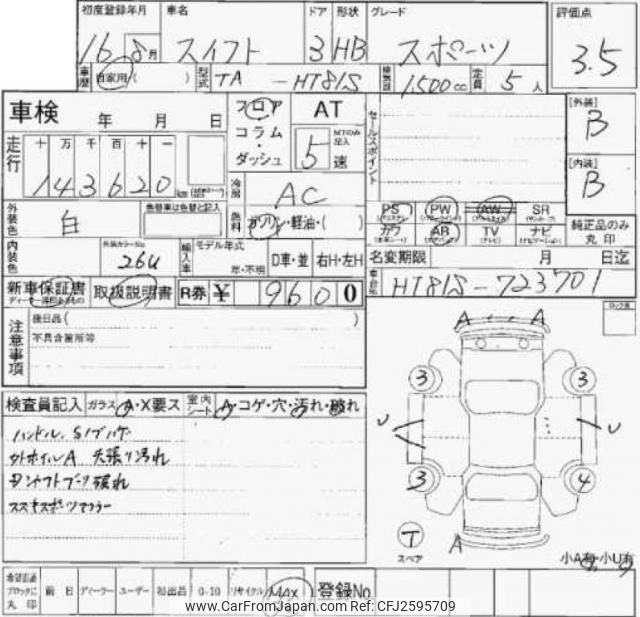 初度登録年月 車名 ドア 形状 グレード 評価点
16 8月 スイフト 3 HB スポーツ 3.5
車歴 自家用( ) 型式 TA - HT81S 排気量 1500cc 定員 5人
車検 年 月 日 フロア AT セールスポイント [外装] B
コラム・ダッシュ 5速
走行 十 万 千 百 十 一
143620 km
冷房 AC [内装] B
外装色 白 色替車は色替と記入 燃料 ガソリン・軽油・( )
PS PW AW SR 純正品のみ丸印
カワ AB TV ナビ
内装色 外装カラーNo. 26U 輸入車 モデル年式 年・不明 D車・並 右H・左H 名変期限 月 日迄
新車保証書 取扱説明書 R券 ¥ 9600 車台No. HT81S-723701
注意事項 後日品( )
不具合箇所等
A A
3 3
U U
3 4
T スペア A
小A有・小U有
検査員記入 ガラス A・X要ス 室内シート A・コゲ・穴・汚れ・破れ
ハンドル、S/ブハゲ
外ホイルA 天張り汚れ
スズキスポーツマフラー
前日 ディーラー ユーザー 初出品 0-10 リサイクル MAX 登録No.
www.CarFromJapan.com Ref: CFJ2595709